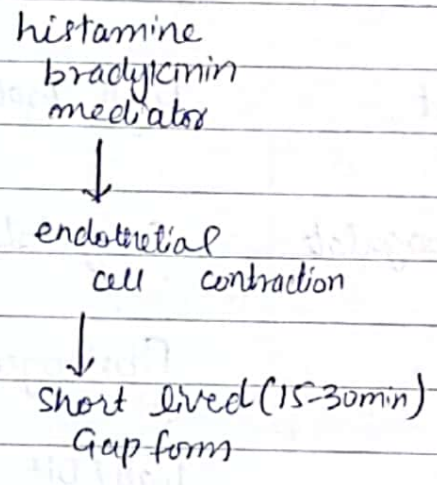 histamine
bradykinin
mediator
endothelial
cell contraction
Short lived (15-30min)
Gap form